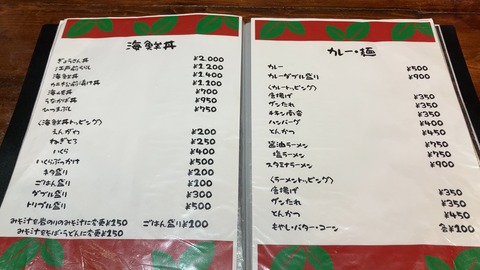 海鮮丼
ぎょうさん丼 ¥2,000
¥1,200
海鮮丼 ¥1,400
¥1,100
海の幸丼 ¥700
うなかば丼 ¥950
ひつまぶし ¥950
〈海鮮丼トッピング〉
えんがわ ¥200
ねぎとろ ¥250
いくら ¥400
いくらぶっかけ ¥500
ネタ盛り ¥200
ごはん盛り ¥200
ダブル盛り ¥300
トリプル盛り ¥500
みそ汁を岩のりのみそ汁に変更¥150 ごはん盛り¥100
みそ汁をそば・うどんに変更¥150
カレー・麺
カレー ¥500
カレーダブル盛り ¥900
〈カレートッピング〉
唐揚げ ¥350
ザンたれ ¥350
チキン南蛮 ¥400
ハンバーグ ¥400
とんかつ ¥450
醤油ラーメン ¥750
塩ラーメン ¥750
スタミナラーメン ¥900
〈ラーメントッピング〉
唐揚げ ¥350
ザンたれ ¥350
とんかつ ¥450
もやし・バター・コーン 各¥100